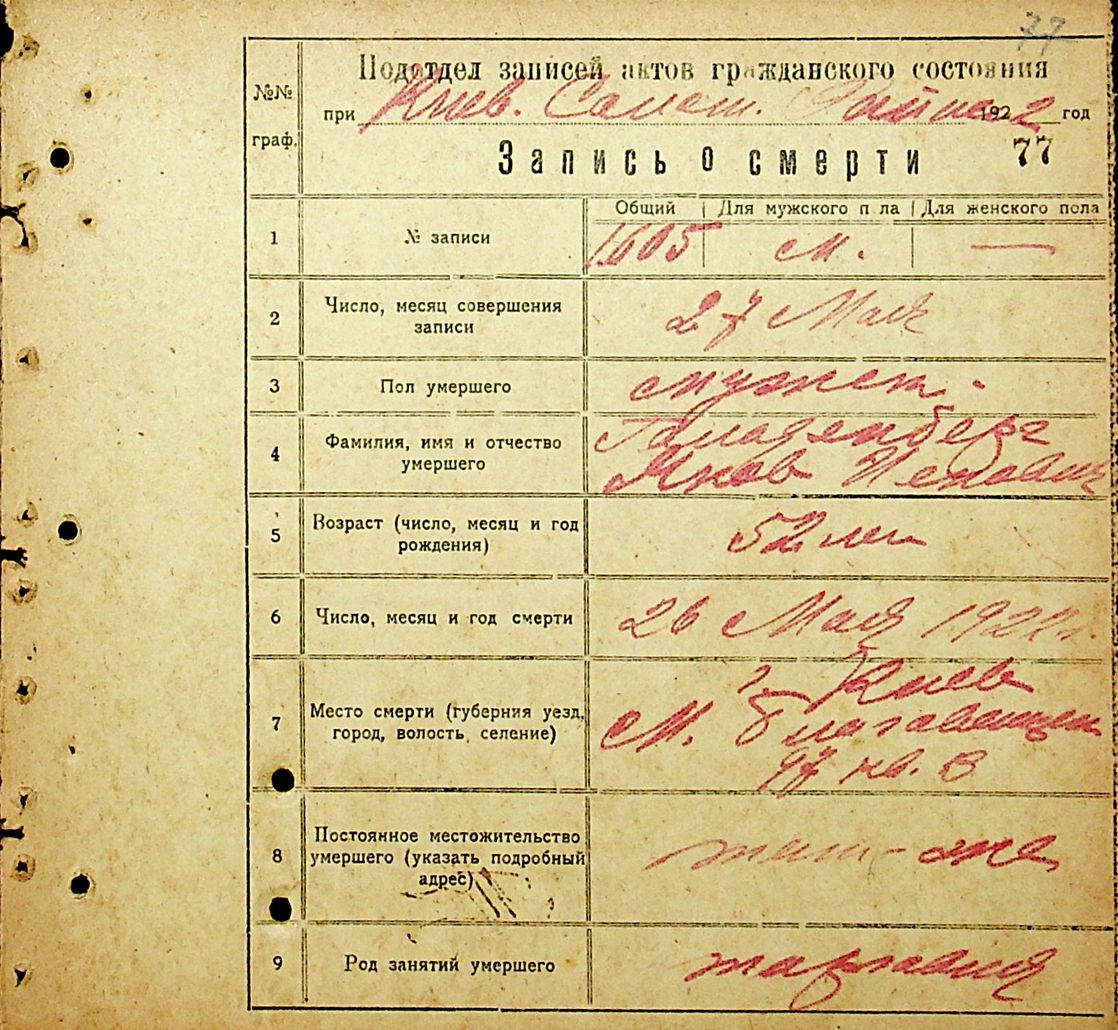 77
Подотдел записей актов гражданского состояния
№№ граф.
при Киев. Совет. 1922 год
Запись о смерти 77
Общий | Для мужского п ла | Для женского пола
1 № записи 1605 м. —
2 Число, месяц совершения записи 27 Мая
3 Пол умершего мужск.
4 Фамилия, имя и отчество умершего
Яков
5 Возраст (число, месяц и год рождения) 52 лет
6 Число, месяц и год смерти 26 Мая 1922 г.
7 Место смерти (губерния уезд, город, волость, селение) г. Киев
М. Благовещен
97 кв. 8
8 Постоянное местожительство умершего (указать подробный адрес) там-же
9 Род занятий умершего торговля